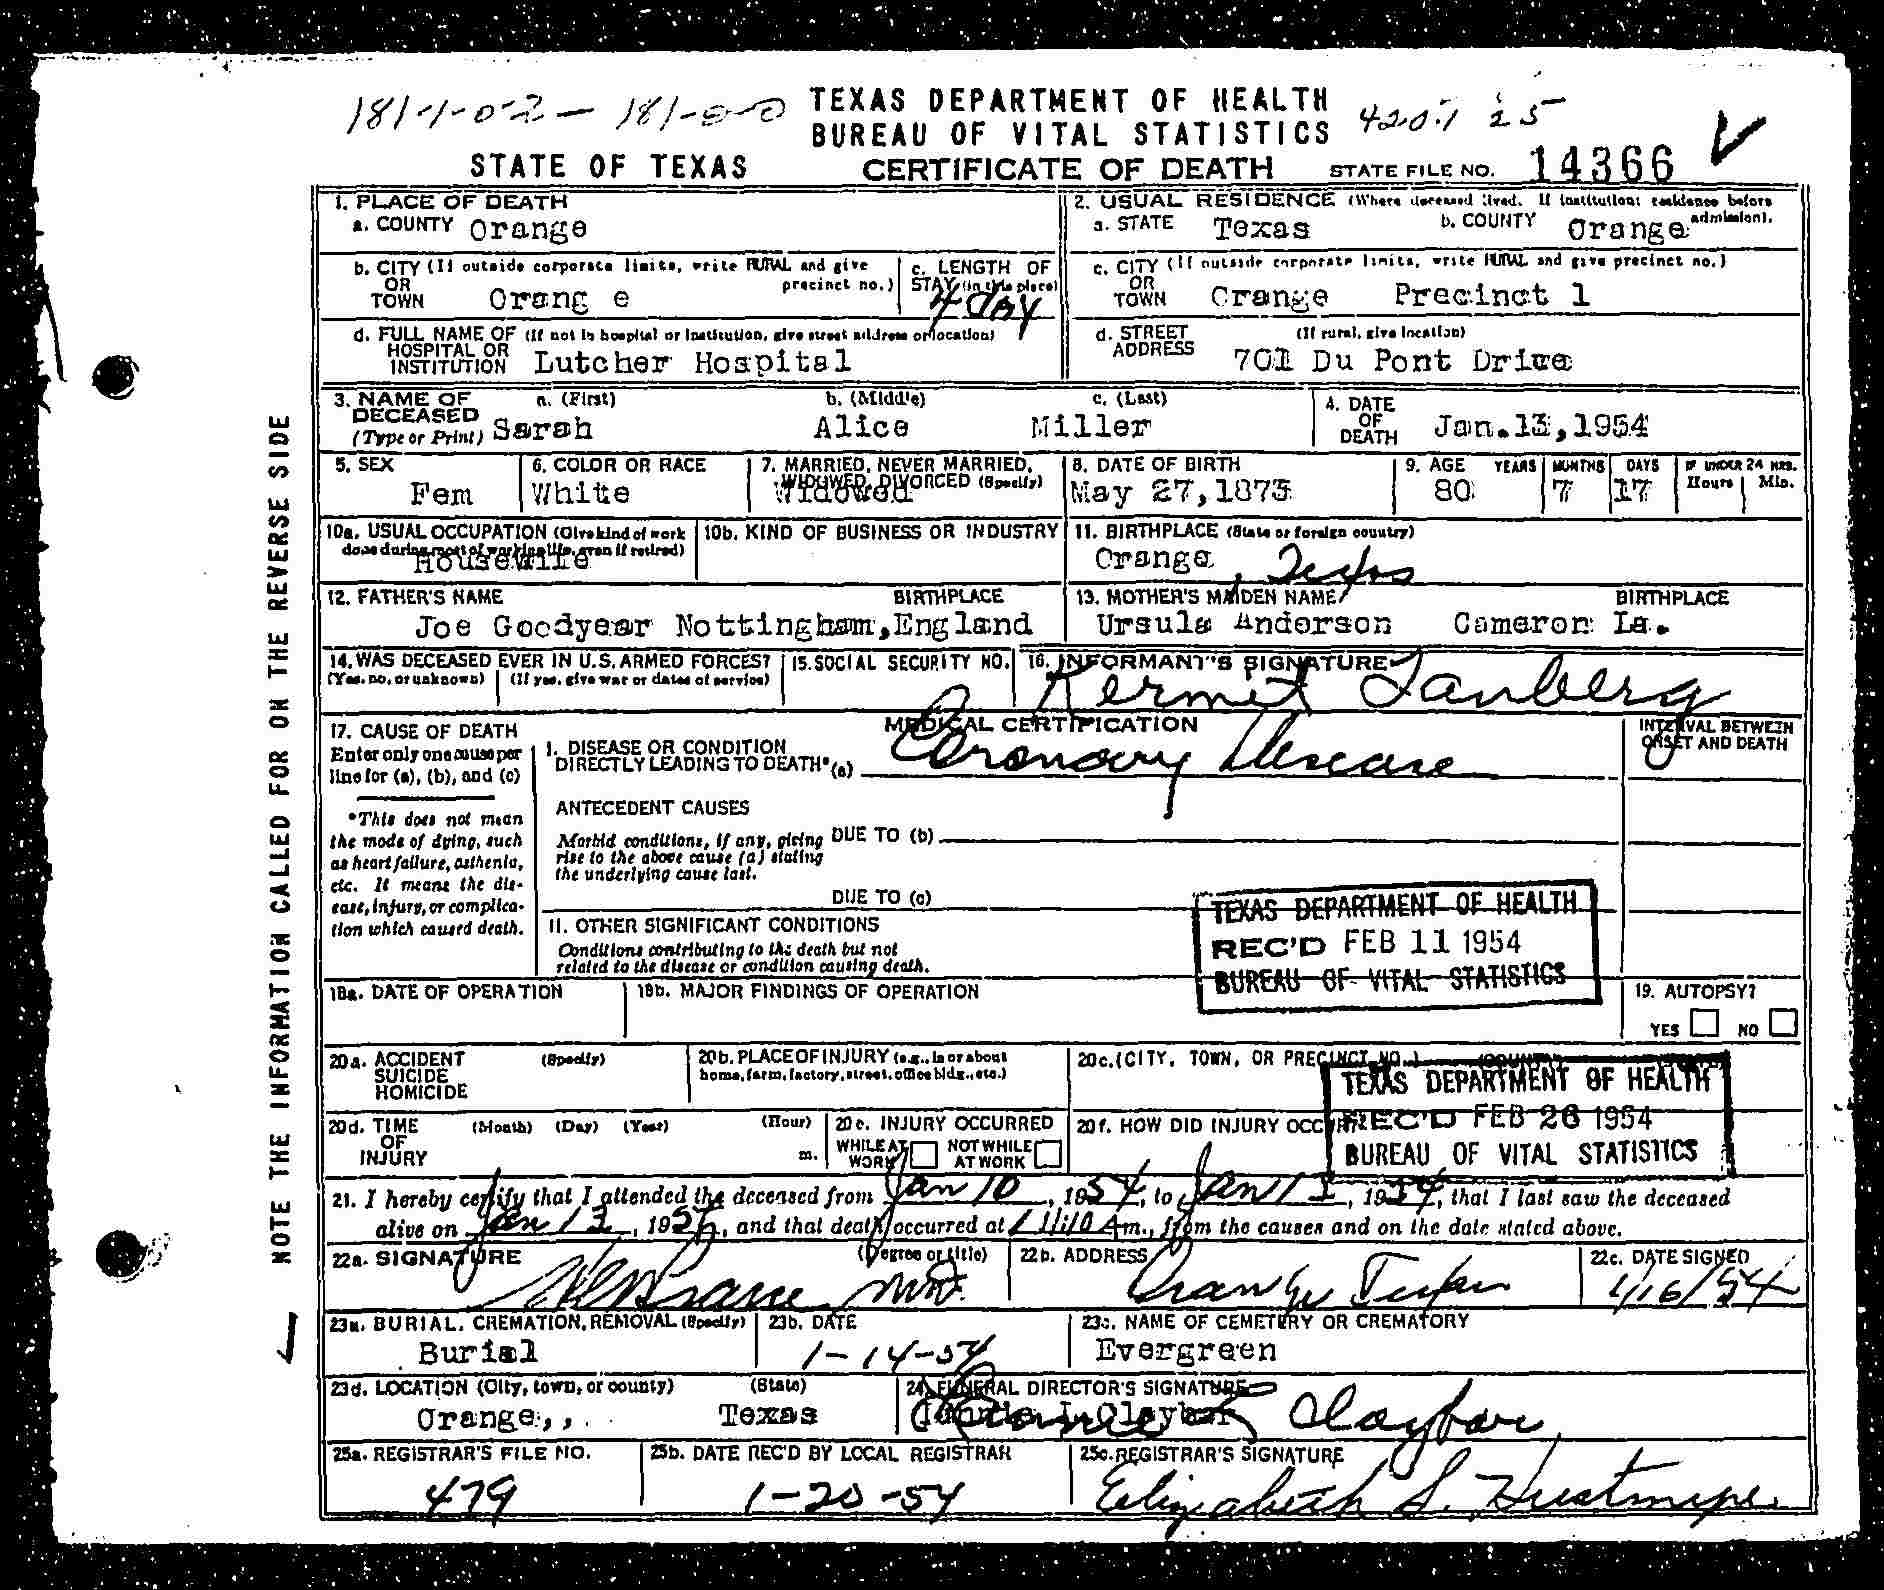 181-1-02 — 181-00
TEXAS DEPARTMENT OF HEALTH
BUREAU OF VITAL STATISTICS
420.1 25
STATE OF TEXAS CERTIFICATE OF DEATH STATE FILE NO. 14366
1. PLACE OF DEATH
a. COUNTY Orange
2. USUAL RESIDENCE (Where deceased lived. If institution: residence before admission).
a. STATE Texas b. COUNTY Orange
b. CITY (If outside corporate limits, write RURAL and give precinct no.)
OR
TOWN Orang e
c. LENGTH OF
STAY (in this place)
4 day
c. CITY (If outside corporate limits, write RURAL and give precinct no.)
OR
TOWN Orange Precinct 1
d. FULL NAME OF (If not in hospital or institution, give street address or location)
HOSPITAL OR
INSTITUTION Lutcher Hospital
d. STREET (If rural, give location)
ADDRESS 701 Du Pont Drive
3. NAME OF
DECEASED
(Type or Print)
a. (First) b. (Middle) c. (Last)
Sarah Alice Miller
4. DATE
OF
DEATH Jan.13,1954
5. SEX
Fem
6. COLOR OR RACE
White
7. MARRIED, NEVER MARRIED,
WIDOWED, DIVORCED (Specify)
Widowed
8. DATE OF BIRTH
May 27,1873
9. AGE YEARS MONTHS DAYS IF UNDER 24 HRS.
Hours Min.
80 7 17
10a. USUAL OCCUPATION (Give kind of work
done during most of working life, even if retired)
Housewife
10b. KIND OF BUSINESS OR INDUSTRY
11. BIRTHPLACE (State or foreign country)
Orange, Texas
12. FATHER'S NAME BIRTHPLACE
Joe Goodyear Nottingham,England
13. MOTHER'S MAIDEN NAME BIRTHPLACE
Ursula Anderson Cameron La.
14. WAS DECEASED EVER IN U.S. ARMED FORCES?
(Yes, no, or unknown) (If yes, give war or dates of service)
15. SOCIAL SECURITY NO.
16. INFORMANT'S SIGNATURE
Kermit Tanberg
MEDICAL CERTIFICATION
17. CAUSE OF DEATH
Enter only one cause per
line for (a), (b), and (c)
*This does not mean
the mode of dying, such
as heart failure, asthenia,
etc. It means the dis-
ease, injury, or complica-
tion which caused death.
I. DISEASE OR CONDITION
DIRECTLY LEADING TO DEATH*(a) Coronary Disease
INTERVAL BETWEEN
ONSET AND DEATH
ANTECEDENT CAUSES
Morbid conditions, if any, giving
rise to the above cause (a) stating
the underlying cause last.
DUE TO (b)
DUE TO (c)
II. OTHER SIGNIFICANT CONDITIONS
Conditions contributing to the death but not
related to the disease or condition causing death.
TEXAS DEPARTMENT OF HEALTH
REC'D FEB 11 1954
BUREAU OF VITAL STATISTICS
18a. DATE OF OPERATION
18b. MAJOR FINDINGS OF OPERATION
19. AUTOPSY?
YES NO
20a. ACCIDENT (Specify)
SUICIDE
HOMICIDE
20b. PLACE OF INJURY (e.g., in or about
home, farm, factory, street, office bldg., etc.)
20c. (CITY, TOWN, OR PRECINCT NO.) (COUNTY)
TEXAS DEPARTMENT OF HEALTH
REC'D FEB 26 1954
BUREAU OF VITAL STATISTICS
20d. TIME (Month) (Day) (Year) (Hour)
OF
INJURY m.
20e. INJURY OCCURRED
WHILE AT WORK NOT WHILE AT WORK
20f. HOW DID INJURY OCCUR?
21. I hereby certify that I attended the deceased from Jan 10, 1954, to Jan 13, 1954, that I last saw the deceased
alive on Jan 13, 1954, and that death occurred at 11:10 Am., from the causes and on the date stated above.
22a. SIGNATURE (Degree or title)
MD.
22b. ADDRESS
Orange Texas
22c. DATE SIGNED
1/16/54
23a. BURIAL, CREMATION, REMOVAL (Specify)
Burial
23b. DATE
1-14-54
23c. NAME OF CEMETERY OR CREMATORY
Evergreen
23d. LOCATION (City, town, or county) (State)
Orange,, Texas
24. FUNERAL DIRECTOR'S SIGNATURE
L Claybar
25a. REGISTRAR'S FILE NO.
479
25b. DATE REC'D BY LOCAL REGISTRAR
1-20-54
25c. REGISTRAR'S SIGNATURE
Elizabeth S.
NOTE THE INFORMATION CALLED FOR ON THE REVERSE SIDE